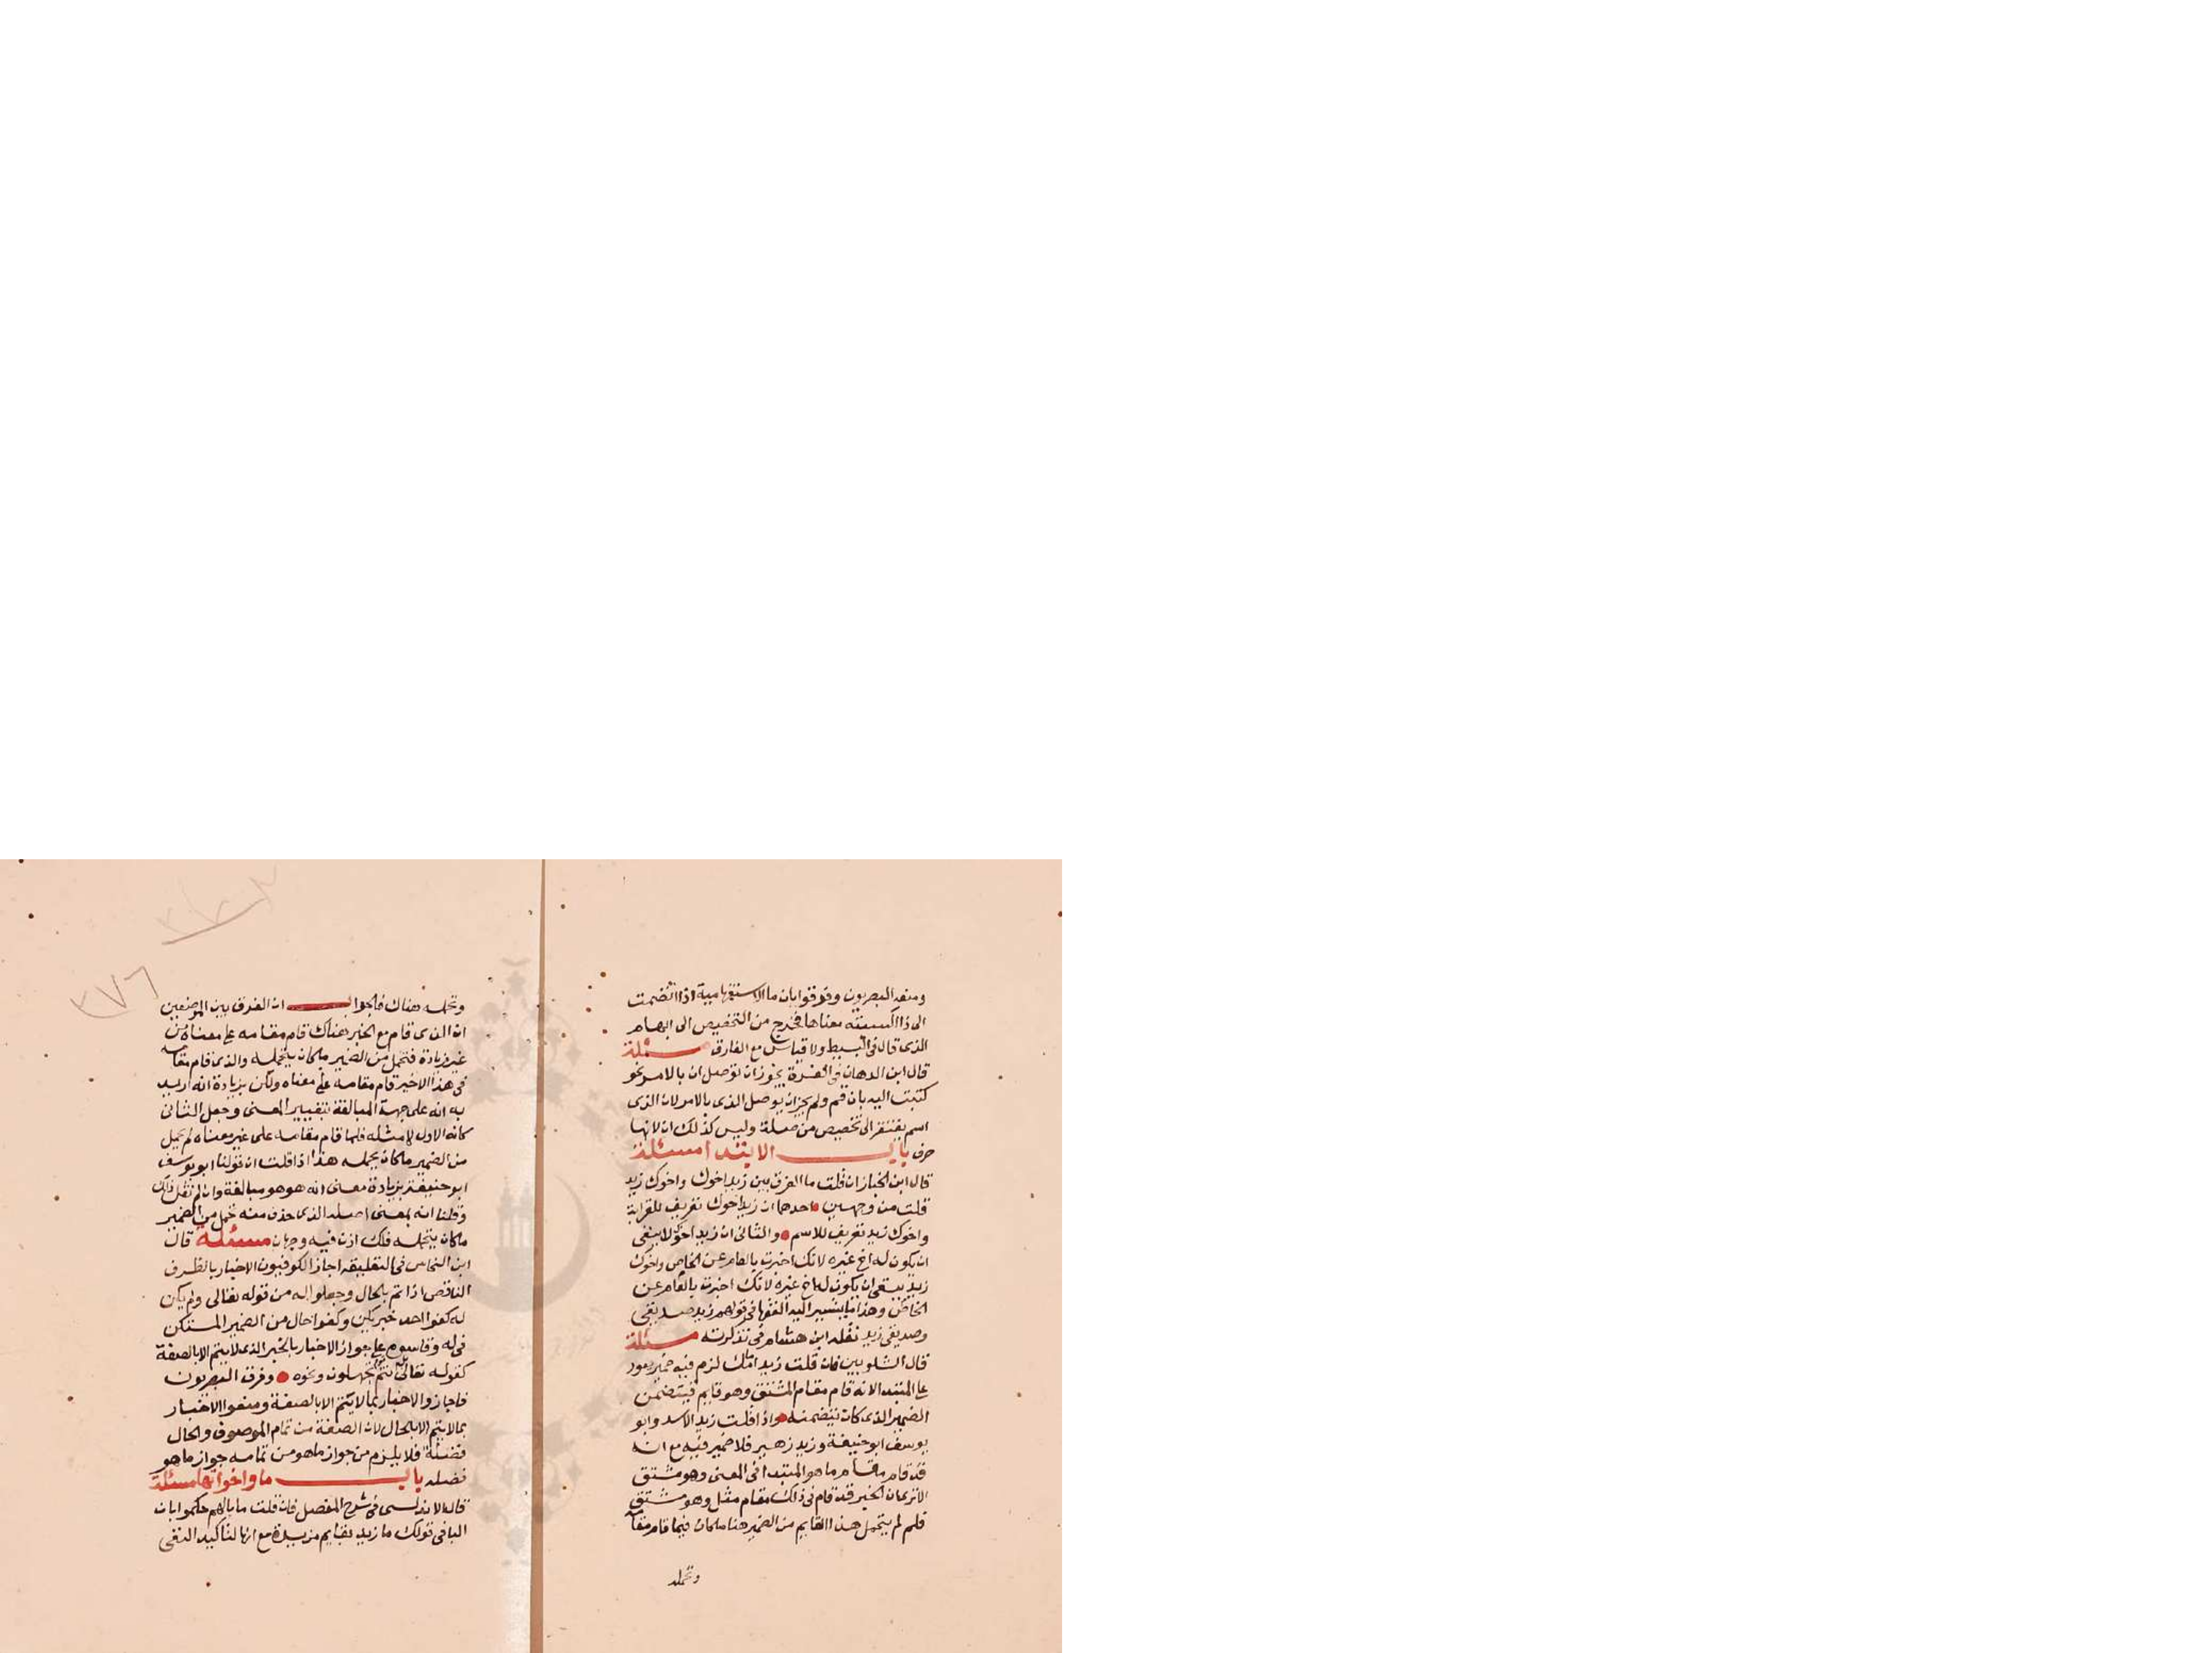 ومنعه البصريون وفرقوا بان ما الاستفهامية اذا انضمت
الى ذا اكسبته معناها فخرج من التخصيص الى ابهام
الذى قال فى البسيط ولا قياس مع الفارق مسئلة
قال ابن الدهان فى الغرة يجوز ان توصل ان بالامر نحو
كتبت اليه بان قم ولم يجز ان يوصل الذى بالامر لان الذى
اسم يفتقر الى تخصيص من صلة وليس كذلك ان لانها
حرف باب الابتدا مسئلة
قال ابن الخباز ان قلت ما الفرق بين زيد اخوك واخوك زيد
قلت من وجهين احدهما ان زيد اخوك تعريف للقرابة
واخوك زيد تعريف للاسم والثانى ان زيد اخوك لا ينفى
ان يكون له اخ غيره لانك اخبرت بالعام عن الخاص واخوك
زيد ينفى ان يكون له اخ غيره لانك اخبرت بالعام عن
الخاص وهذا ما يشير اليه الفقها فى قولهم زيد صديقى
وصديقى زيد نقله ابن هشام فى تذكرته مسئلة
قال الشلوبين فان قلت زيد لزم فيه ضمير يعود
على المبتدا لانه قام مقام المشتق وهو قايم فيتضمن
الضمير الذى كان يتضمنه واذا قلت زيد الاسد وابو
يوسف ابو حنيفة وزيد زهير فلا ضمير فيه مع انه
قد قام مقام ما هو المبتدا فى المعنى وهو مشتق
الا ترى ان الخبر قد قام فى ذلك مقام مثل وهو مشتق
فلم لم يتحمل هذا القايم من الضمير هنا ما كان فيما قام مقامه
وتحمله
٣٧٦
وتحمله هناك فالجواب ان الفرق بين الموضعين
ان الذى قام مع الخبر هناك قام مقامه على معناه من
غير زيادة فتحمل من الضمير ما كان يتحمله والذى قام مقامه
فى هذا الاخير قام مقامه على معناه ولكن بزيادة انه اريد
به انه على جهة المبالغة بتغيير المعنى وجعل الثانى
كانه الاول لا مثله فلما قام مقامه على غير معناه لم يحمل
من الضمير ما كان يحمله هذا اذا قلت ان قولنا ابو يوسف
ابو حنيفة بزيادة معنى انه هو هو مبالغة وان لم نقل ذلك
وقلنا انه بمعنى اصله الذى حذف منه تحمل من الضمير
ما كان يتحمله فلك اذن فيه وجهان مسئلة قال
ابن النحاس فى التعليقة اجاز الكوفيون الاخبار بالظرف
الناقص اذا تم بالحال وجعلوا له من قوله تعالى ولم يكن
له كفوا احد خبر يكن وكفوا حال من الضمير المستكن
فى له وقاسوه على جواز الاخبار بالخبر الذى لا يتم الا بالصفة
كقوله تعالى بل انتم قوم تجهلون ونحوه وفرق البصريون
فاجازوا الاخبار بما لا يتم الا بالصفة ومنعوا الاخبار
بما لا يتم الا بالحال لان الصفة من تمام الموصوف والحال
فضلة فلا يلزم من جواز ما هو من تمامه جواز ما هو
فضله باب ما واخواتها مسئلة
قال الاندلسى فى شرح المفصل فان قلت ما بالهم حكموا بان
البا فى قولك ما زيد بقايم مزيدة مع انها لتاكيد النفى